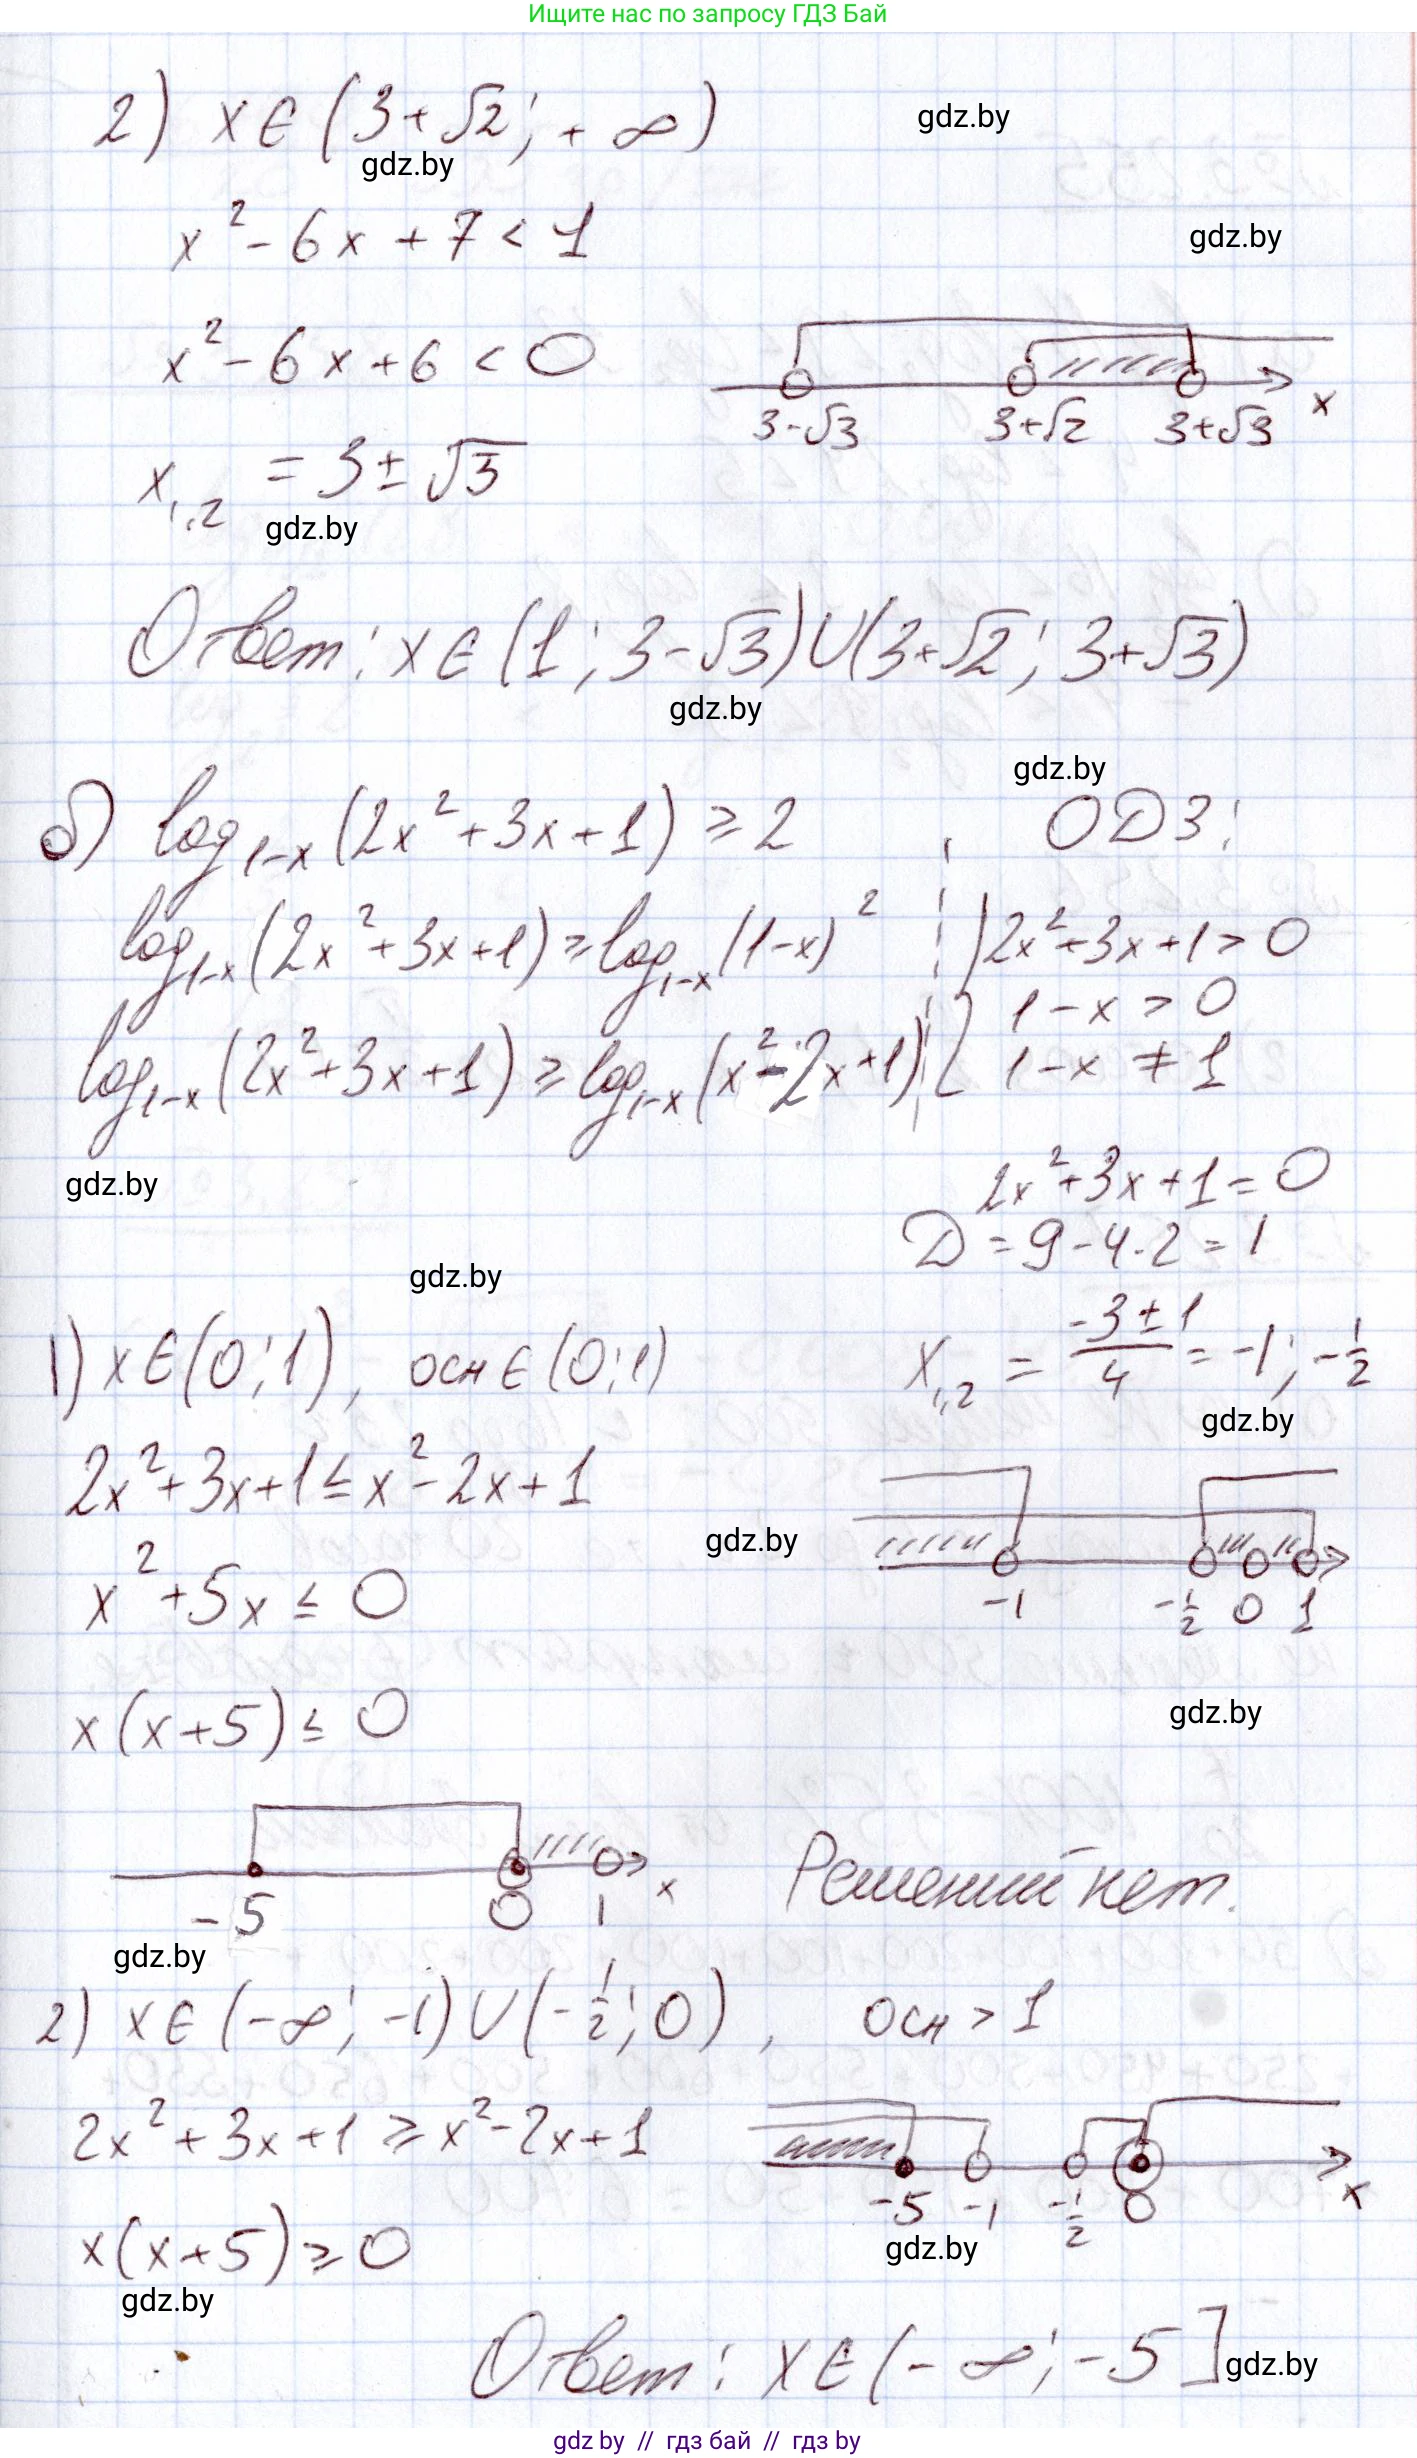 Ищите нас по запросу ГДЗ Бай
2) x ∈ (3+√2; +∞)
gdz.by
gdz.by
x² - 6x + 7 < 1
gdz.by
x² - 6x + 6 < 0
3-√3 3+√2 3+√3 x
x₁,₂ = 3 ± √3
gdz.by
Ответ: x ∈ (1; 3-√3) ∪ (3+√2; 3+√3)
gdz.by
gdz.by
б) log₁₋ₓ(2x²+3x+1) ≥ 2
ОДЗ:
log₁₋ₓ(2x²+3x+1) ≥ log₁₋ₓ(1-x)²
2x²+3x+1 > 0
1-x > 0
log₁₋ₓ(2x²+3x+1) ≥ log₁₋ₓ(x²-2x+1)
1-x ≠ 1
gdz.by
2x²+3x+1 = 0
D = 9-4·2 = 1
gdz.by
1) x ∈ (0; 1), осн ∈ (0; 1)
x₁,₂ = (-3±1)/4 = -1; -1/2
gdz.by
2x²+3x+1 ≤ x²-2x+1
gdz.by
x²+5x ≤ 0
-1 -1/2 0 1
x(x+5) ≤ 0
gdz.by
-5 0 1 x
Решений нет.
gdz.by
2) x ∈ (-∞; -1) ∪ (-1/2; 0), осн > 1
2x²+3x+1 ≥ x²-2x+1
-5 -1 -1/2 0 x
x(x+5) ≥ 0
gdz.by
gdz.by
Ответ: x ∈ (-∞; -5]
gdz.by
gdz by // гдз бай // гдз by